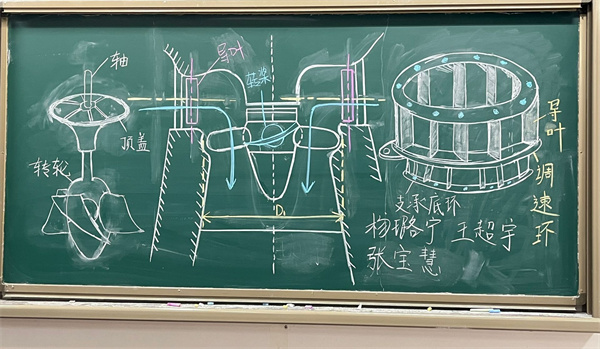 轴
顶盖
转轮
导叶
转桨
D₁
导叶
调速环
支承底环
杨璐宁 王超宇
张宝慧